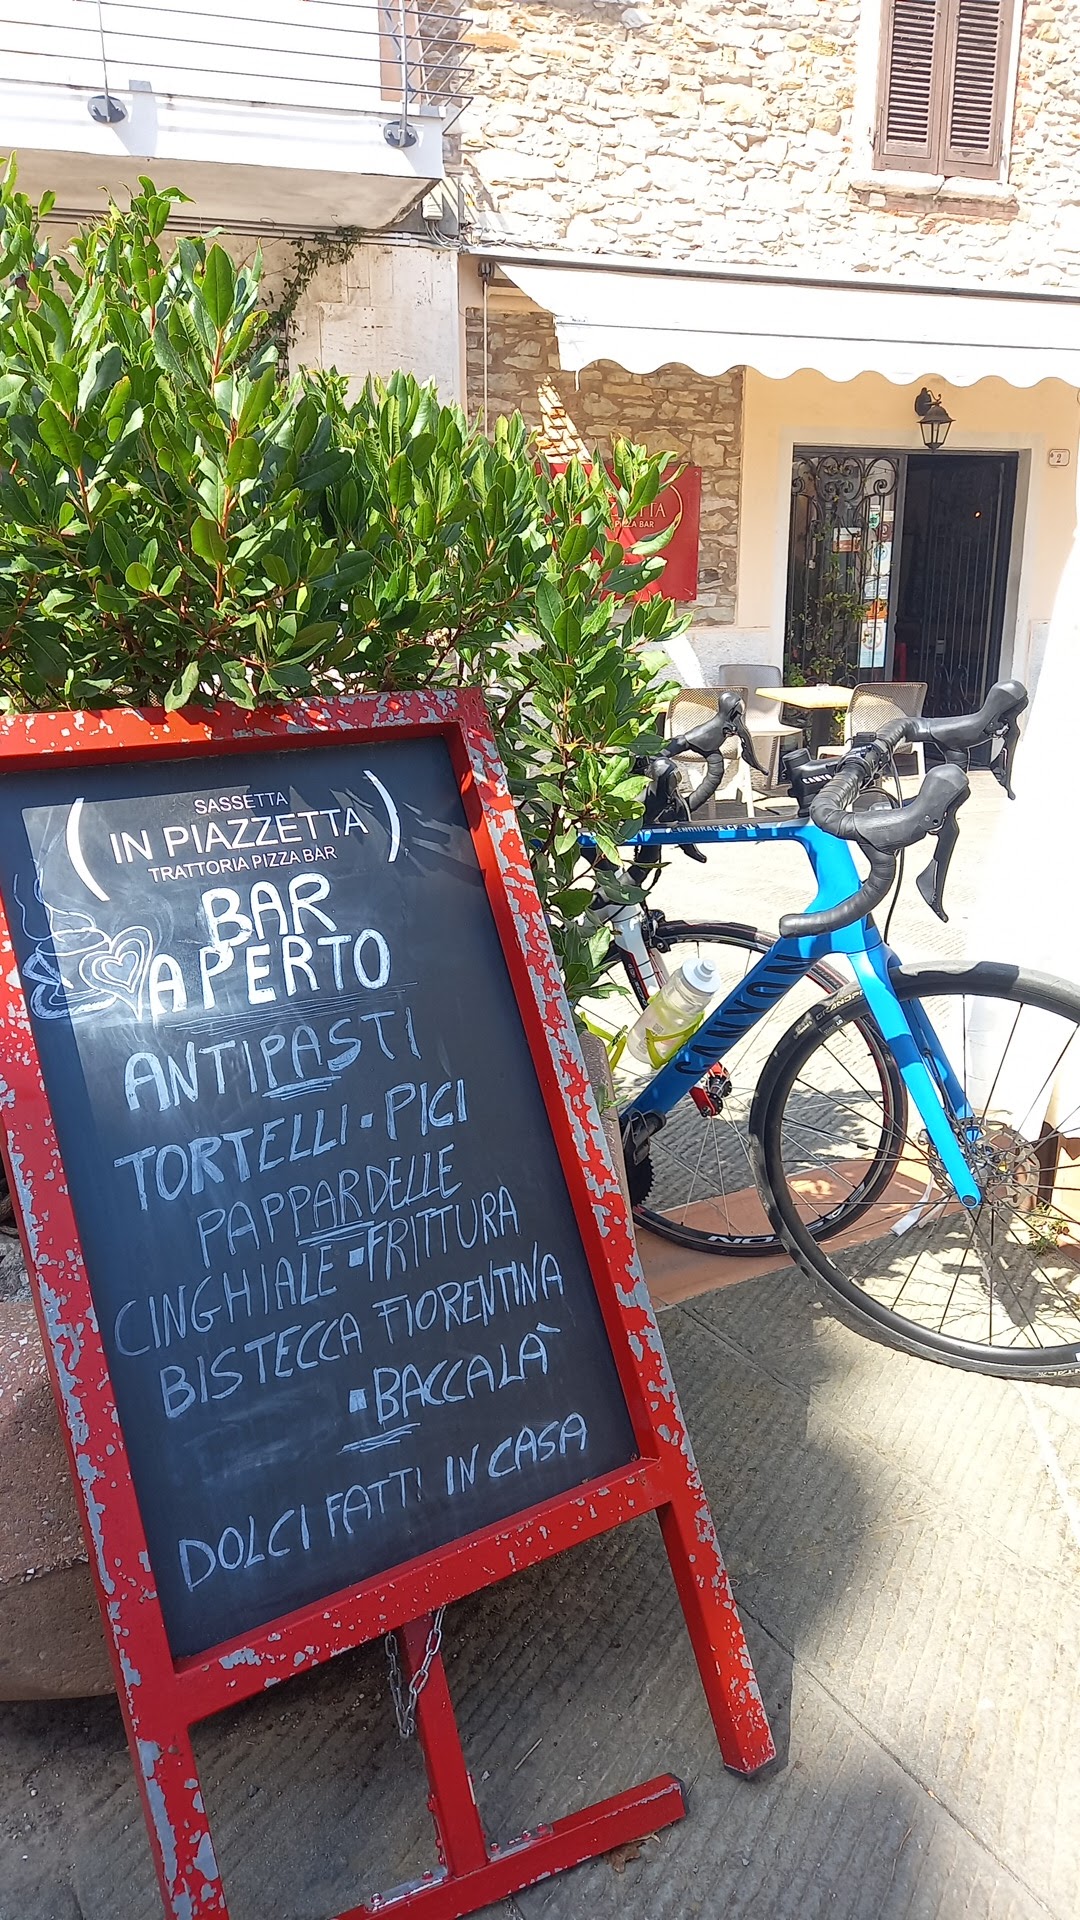 SASSETTA
IN PIAZZETTA
TRATTORIA PIZZA BAR
BAR
APERTO
ANTIPASTI
TORTELLI·PICI
PAPPARDELLE
CINGHIALE·FRITTURA
BISTECCA FIORENTINA
·BACCALÀ
DOLCI FATTI IN CASA
PIZZA BAR
2
CANYON